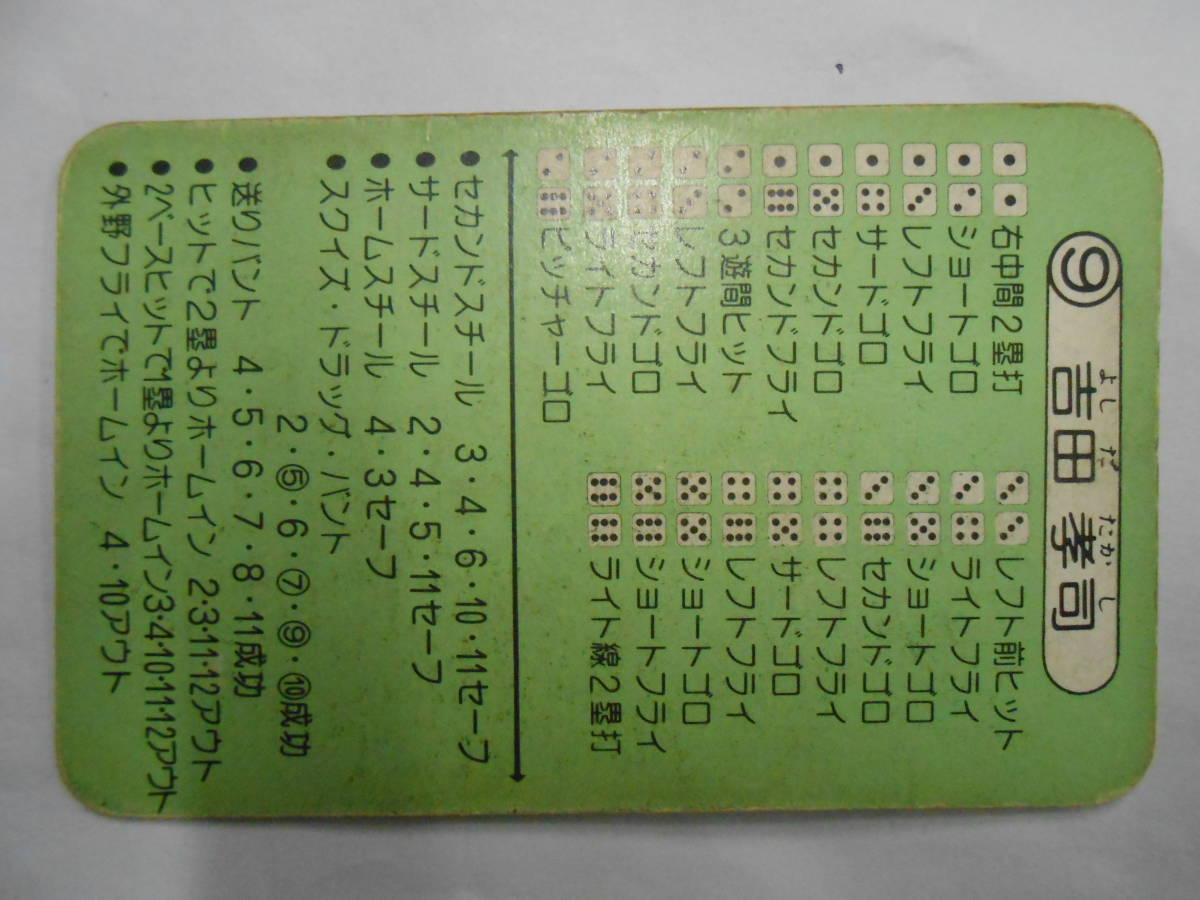 ⑨ 吉田 孝司
よし だ たか し
右中間2塁打
ショートゴロ
レフトフライ
サードゴロ
セカンドゴロ
セカンドフライ
3遊間ヒット
レフトフライ
セカンドゴロ
ライトフライ
ピッチャーゴロ
レフト前ヒット
ライトフライ
ショートゴロ
セカンドゴロ
レフトフライ
サードゴロ
レフトフライ
ショートゴロ
ショートフライ
ライト線2塁打
●セカンドスチール 3・4・6・10・11セーフ
●サードスチール 2・4・5・11セーフ
●ホームスチール 4・3セーフ
●スクイズ・ドラッグ・バント
2・⑤・6・⑦・⑨・⑩成功
●送りバント 4・5・6・7・8・11成功
●ヒットで2塁よりホームイン 2・3・11・12アウト
●2ベースヒットで1塁よりホームイン3・4・10・11・12アウト
●外野フライでホームイン 4・10アウト